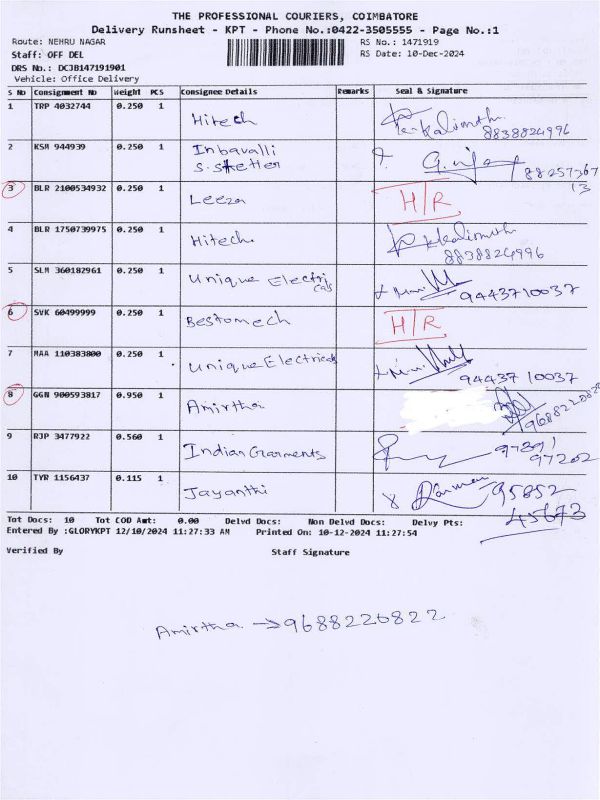 THE PROFESSIONAL COURIERS, COIMBATORE
Delivery Runsheet - KPT - Phone No.:0422-3505555 - Page No.:1
Route: NEHRU NAGAR RS No.: 1471919
Staff: OFF DEL RS Date: 10-Dec-2024
DRS No.: DCJB147191901
Vehicle: Office Delivery
S No Consignment No Weight PCS Consignee Details Remarks Seal & Signature
1 TRP 4032744 0.250 1 Hitech 8838824996
2 KSM 944939 0.250 1 Inbavalli
S.
8825736713
3 BLR 2100534932 0.250 1 Leeza H/R
4 BLR 1750739975 0.250 1 Hitech 8838824996
5 SLM 360182961 0.250 1 Unique Electricals 9443710037
6 SVK 60499999 0.250 1 Bestomech H/R
7 MAA 110383800 0.250 1 Unique Electricals 9443710037
8 GGN 900593817 0.950 1 Amirtha
9 RJP 3477922 0.560 1 Indian Garments
97202
10 TYR 1156437 0.115 1 Jayanthi 95852
45673
Tot Docs: 10 Tot COD Amt: 0.00 Delvd Docs: Non Delvd Docs: Delvy Pts:
Entered By :GLORYKPT 12/10/2024 11:27:33 AM Printed On: 10-12-2024 11:27:54
Verified By Staff Signature
Amirtha → 9688226822